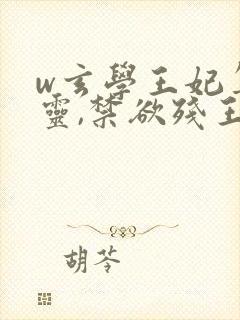 w玄學王妃
靈,禁欲殘王
胡苓